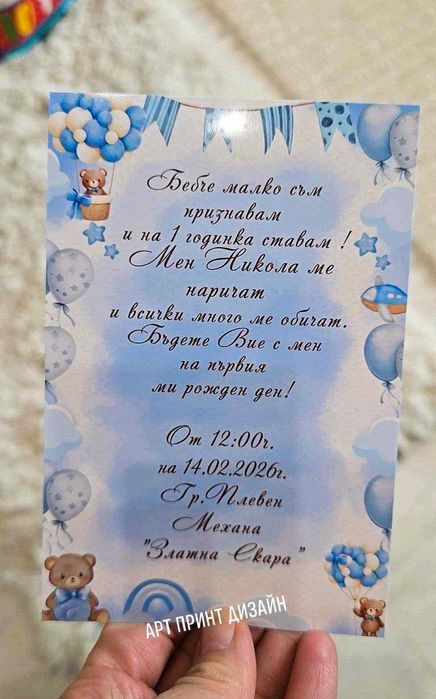 Бебче малко съм
признавам
и на 1 годинка ставам !
Мен Никола ме
наричат
и всички много ме обичат.
Бъдете Вие с мен
на първия
ми рожден ден!
От 12:00ч.
на 14.02.2026г.
Гр.Плевен
Механа
"Златна Скара"
АРТ ПРИНТ ДИЗАЙН